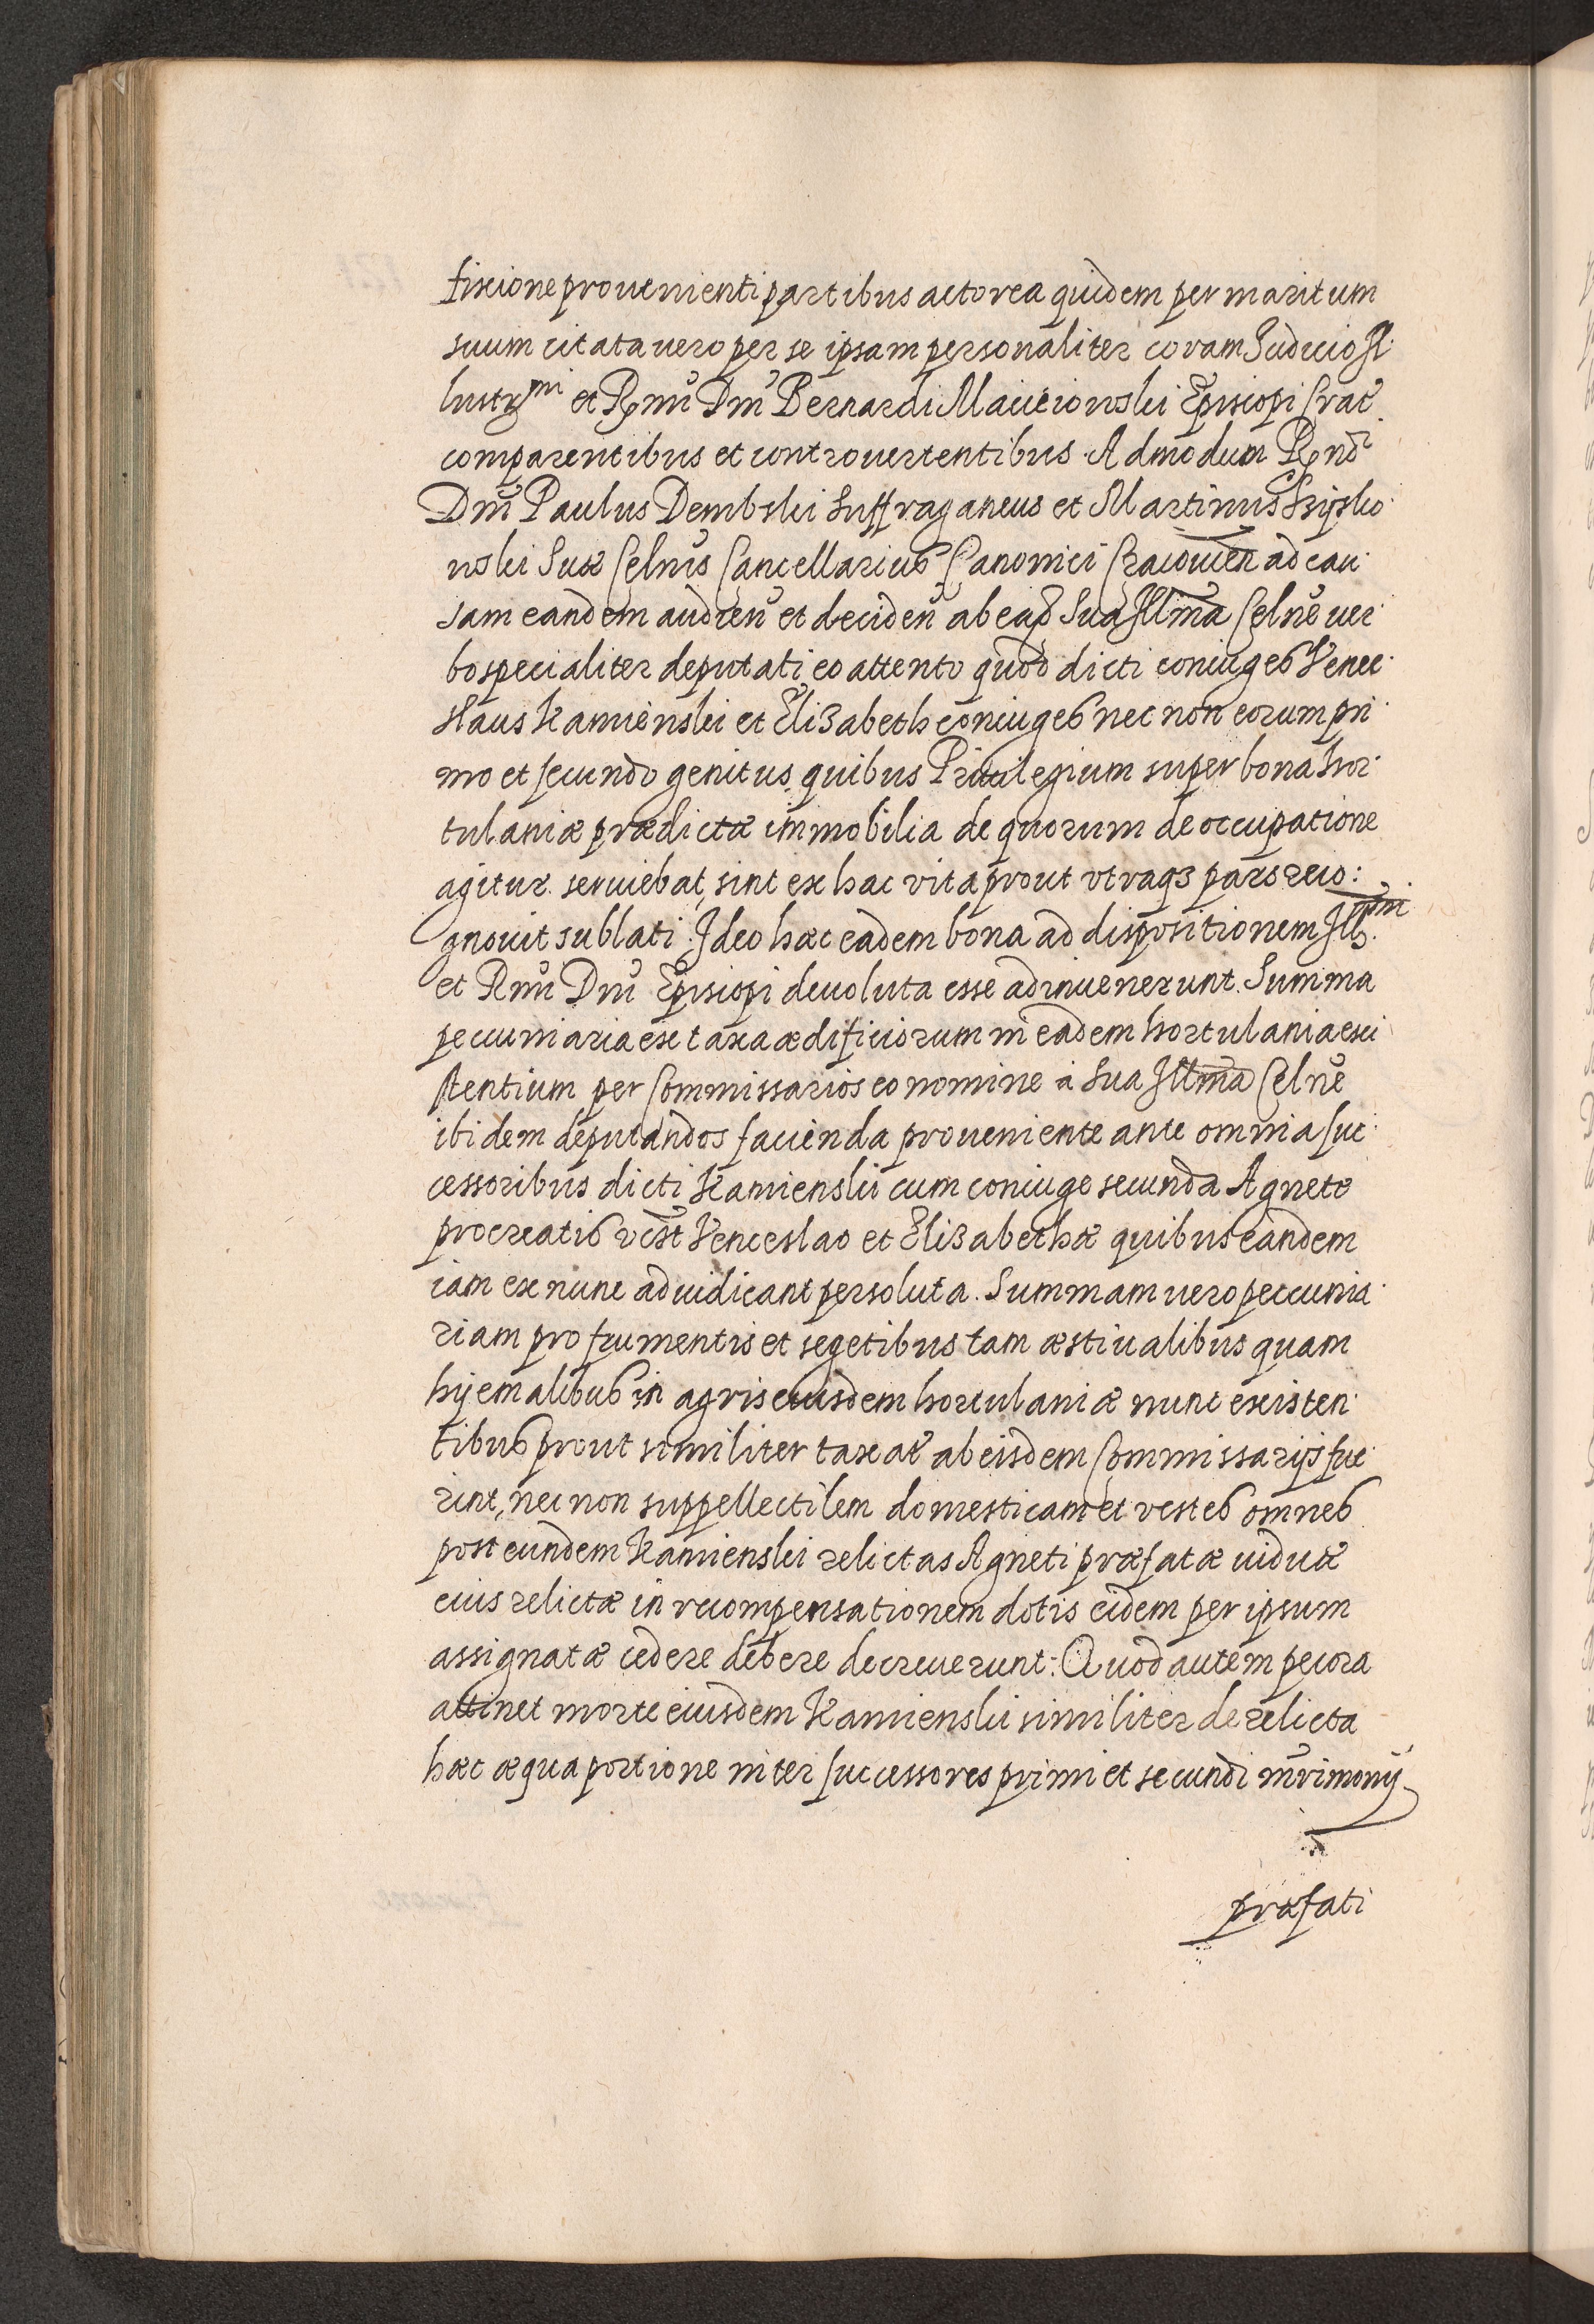 fixione prouenienti partibus actorea quidem per maritum
suum citata uero per se ipsam personaliter coram Judicio Il:
lustr^mi et Rmi Dni Bernardi Macieiowski Episcopi Crac̄
comparentibus et controuertentibus Admodum Rndi
Dni Paulus Dembski Suffraganeus et Martinus Szysko:
wski Suæ Celnis Cancellarius Canonici Cracouien̄ ad cau:
sam eandem audien̄ et deciden̄ ab ead̄ Sua Illma Celne uer:
bo specialiter deputati eo attento quod dicti coniuges Vence:
slaus Kamienski et Elizabeth coniuges nec non eorum pri:
mo et secundo genitus, quibus Priuilegium super bona hor:
tulaniæ prædictæ immobilia de quorum de occupatione
agitur seruiebat, sint ex hac vita prout vtraq3 pars reco:
gnouit sublati: Ideo hæc eadem bona ad dispositionem Ill^mi
et Rmi Dni Episcopi deuoluta esse adinuenerunt. Summa
peccuniaria ex taxa ædificiorum in eadem hortulania exi
stentium per Commissarios eo nomine a Sua Illma Celne
ibidem deputandos facienda proueniente ante omnia suc:
cessoribus dicti Kamienskii cum coniuge secunda Agnete
procreatis vc̄zt Venceslao et Elizabethæ quibus eandem
iam ex nunc adiudicant persoluta. Summam uero peccunia:
riam pro frumentis et segetibus tam æstiualibus quam
hyemalibus in agris eiusdem hortulaniæ nunc existen:
tibus prout similiter taxatæ ab eisdem Commissarijs fue:
rint, nec non suppellectilem domesticam et vestes omnes
post eundem Kamienski relictas Agneti præfatæ uiduæ
eius relictæ in recompensationem dotis eidem per ipsum
assignatæ cedere debere decreuerunt: Quod autem pecora
attinet morte eiusdem Kamienskii similiter derelicta
hæc æqua portione inter successores primi et secundi mr̄imonij
præfati